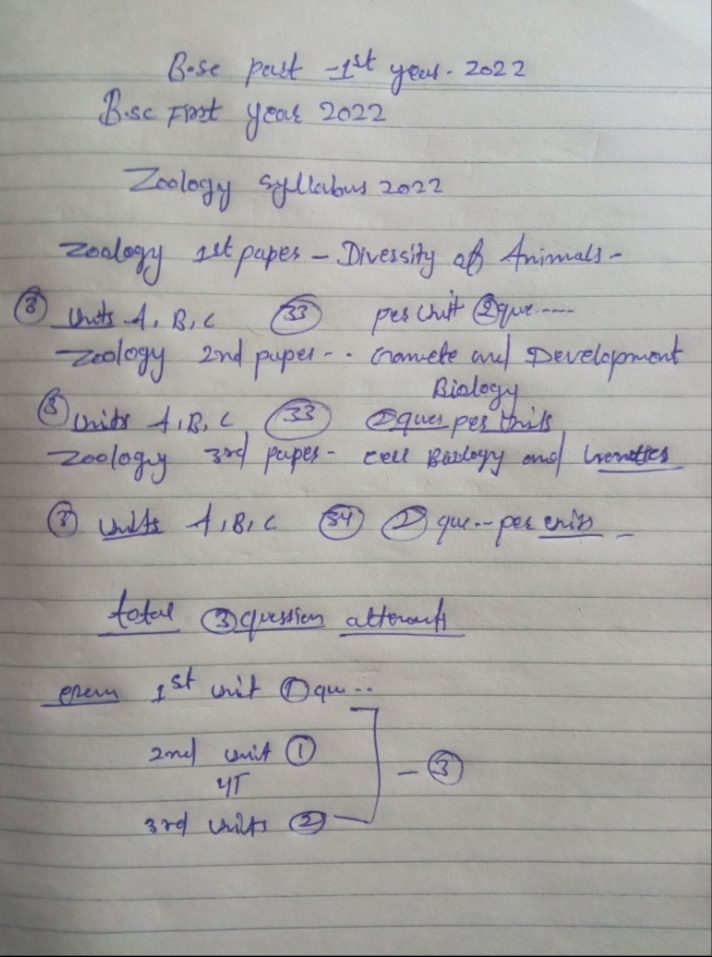 B.sc part -1st year. 2022
B.sc First year 2022
Zoology Syllabus 2022
Zoology 1st paper - Diversity of Animals -
③ Units A, B, C (33) per Unit ② que----
Zoology 2nd paper - .. Gamete and Development
Biology
③ Units A, B, C (33) ② ques per Units
Zoology 3rd paper - cell Biology and Genetics
③ Units A, B, C (34) ② que-- per
total ③ question
1st unit ① qu..
2nd unit ①
या
3rd Units ②
- ③